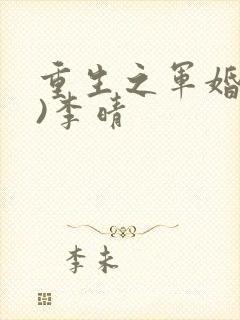 重生之军婚
)李晴
李未